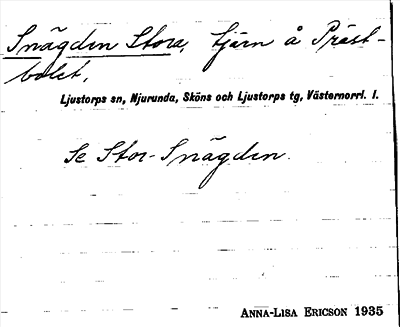 Snägden Stora, tjärn å Präst-
bolet,
Ljustorps sn, Njurunda, Sköns och Ljustorps tg, Västernorrl. l.
Se Stor-Snägden.
ANNA-LISA ERICSON 1935